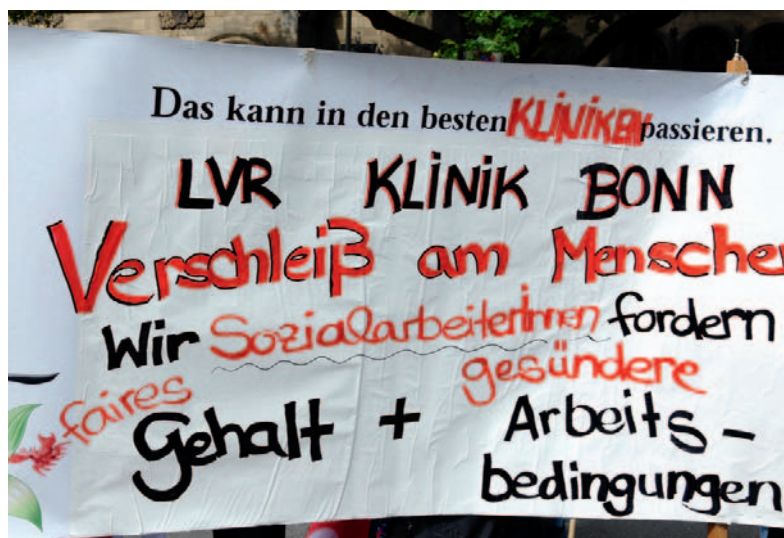 Das kann in den besten KLiNiKEN passieren.
LVR KLiNiK BONN
Verschleiß am Mensche
Wir SozialarbeiterInnen fordern
faires gesündere
Gehalt + Arbeits-
bedingungen